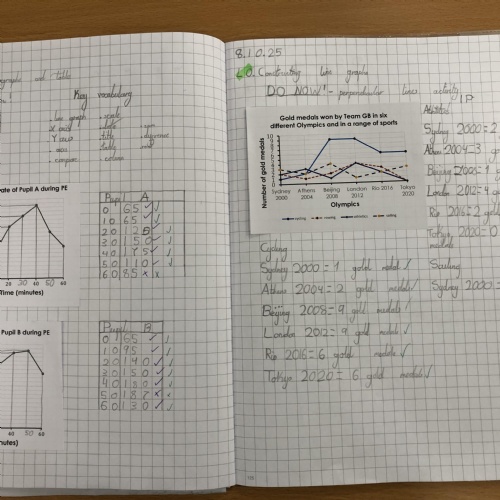 Key vocabulary
line graph
scale
X axis
Y axis
title
compare
column
Rate of Pupil A during PE
20 30 40 50 60
Time (minutes)
Pupil A
0 65 ✓
10 65 ✓
20 125 ✓
30 150 ✓
40 175 ✓
50 110 ✓
60 85 x x
Pupil B during PE
40 50 60
(minutes)
Pupil B
0 65 ✓
10 95 ✓
20 140 ✓
30 150 ✓
40 150 ✓
50 187 x x
60 130 ✓
8.10.25
LO: Constructing line graphs
DO NOW! - perpendicular lines activity
IP
Gold medals won by Team GB in six
different Olympics and in a range of sports
Number of gold medals
10
9
8
7
6
5
4
3
2
1
0
Sydney 2000
Athens 2004
Beijing 2008
London 2012
Rio 2016
Tokyo 2020
Olympics
cycling
rowing
athletics
sailing
Athletics
Sydney 2000 = 2
Athens 2004 = 3
Beijing 2008 = 1 g
London 2012 = 4
Rio 2016 = 2 gold
Tokyo 2020 = 0
medals
Cycling
Sydney 2000 = 1 gold medal ✓
Athens 2004 = 2 gold medals ✓
Beijing 2008 = 9 gold medals ✓
London 2012 = 9 gold medals ✓
Rio 2016 = 6 gold medals ✓
Tokyo 2020 = 6 gold medals ✓
Sailing
Sydney 2000 =